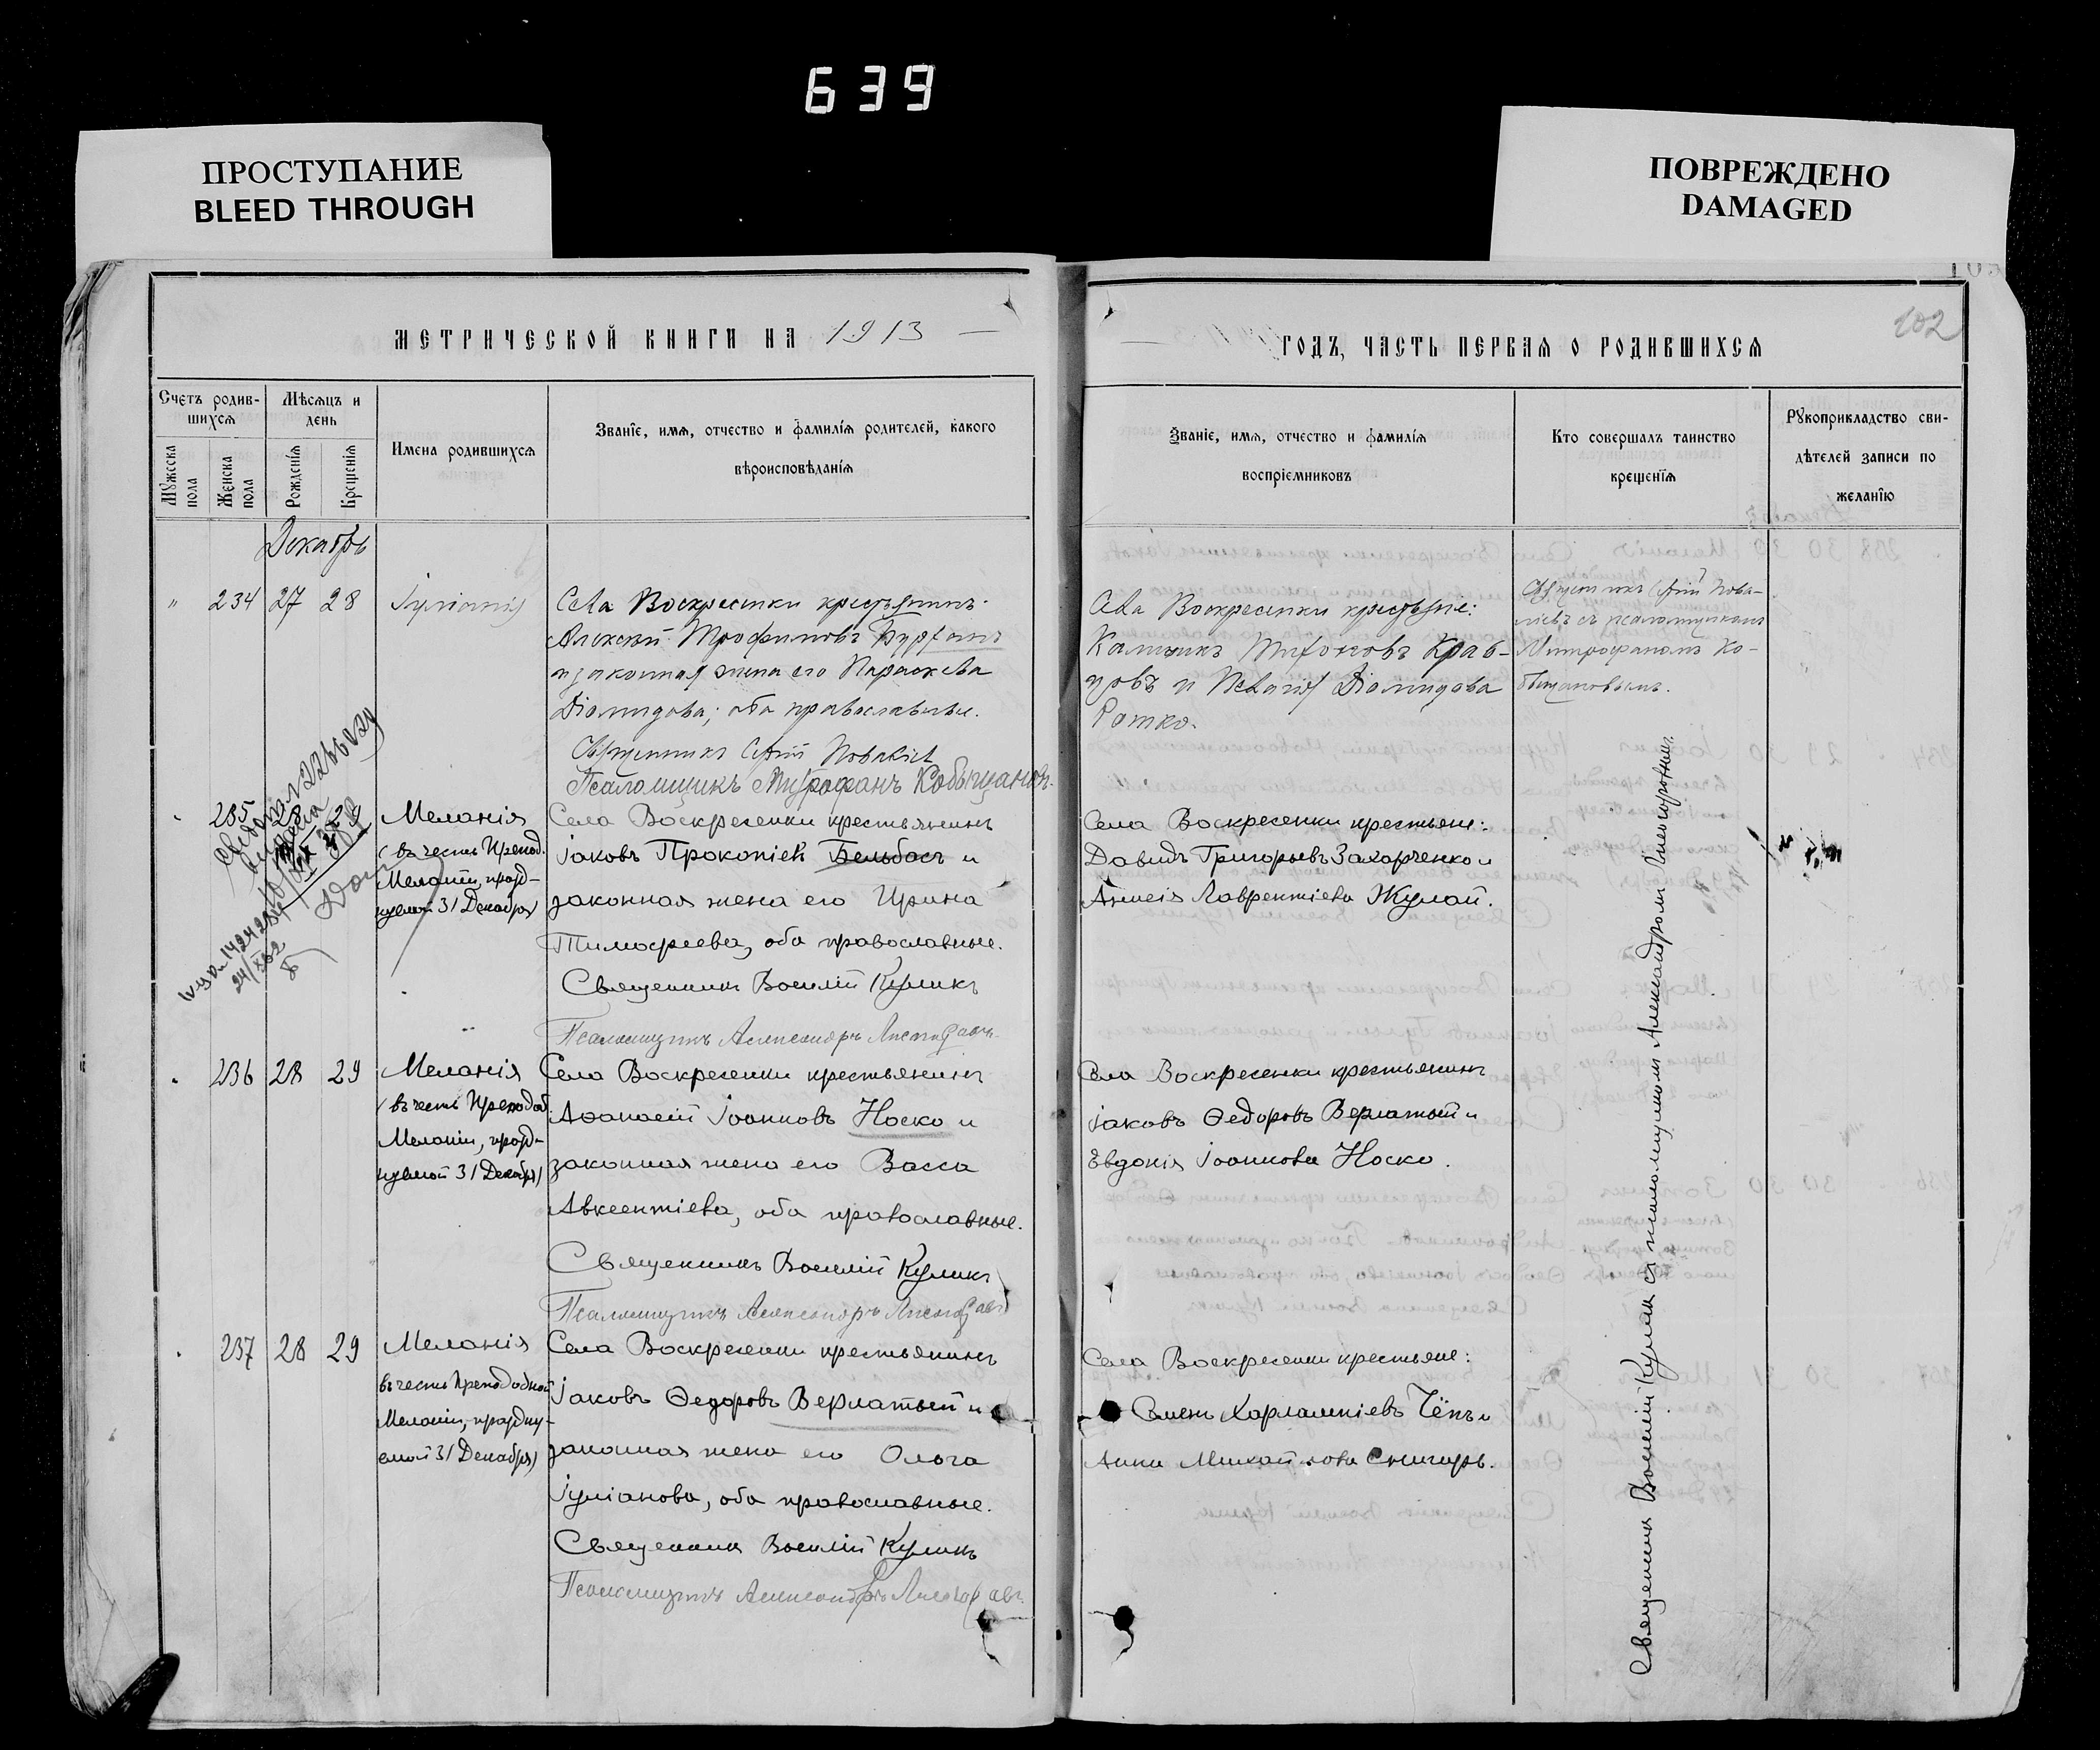 639
ПРОСТУПАНИЕ
BLEED THROUGH
ПОВРЕЖДЕНО
DAMAGED
МЕТРИЧЕСКОЙ КНИГИ НА 1913
ГОДЪ, ЧАСТЬ ПЕРВАЯ О РОДИВШИХСЯ
102
Счетъ родив-
шихся
Мѣсяцъ и
день
Мужеска
пола
Женска
пола
Рожденія
Крещенія
Имена родившихся
Званіе, имя, отчество и фамилія родителей, какого
вѣроисповѣданія
Званіе, имя, отчество и фамилія
воспріемниковъ
Кто совершалъ таинство
крещенія
Рукоприкладство сви-
дѣтелей записи по
желанію
Декабрь
" 234 27 28
Села Воскресенки крестьянинъ
Алексѣй Трофимовъ
и законная жена его Параскева
Діомидова; оба православные.
Священникъ
Псаломщикъ Митрофанъ Кобыщановъ.
Села Воскресенки крестьяне:
Калиникъ Тихоновъ Крав-
цовъ и Пелагія Діомидова
Ротко.
съ псаломщикомъ
Митрофаномъ Ко-
быщановымъ.
235 28 29 Меланія
(въ честь Препод.
Меланіи, празд-
нуемой 31 Декабря)
Села Воскресенки крестьянинъ
Іаковъ Прокопіевъ Бельбасъ и
законная жена его Ирина
Тимофеева, оба православные.
Священникъ Василій Куликъ
Псаломщикъ Александръ
Села Воскресенки крестьяне:
Давидъ Григорьевъ Захарченко и
Анисія Лаврентіева Жулай.
236 28 29 Меланія
(въ честь Преподоб.
Меланіи, празд-
нуемой 31 Декабря)
Села Воскресенки крестьянинъ
Аѳанасій Іоанновъ Носко и
законная жена его Васса
Авксентіева, оба православные.
Священникъ Василій Куликъ
Псаломщикъ Александръ
Села Воскресенки крестьянинъ
Іаковъ Ѳедоровъ Верлатый и
Евдокія Іоаннова Носко.
237 28 29 Меланія
въ честь Преподобной
Меланіи, праздну-
емой 31 Декабря)
Села Воскресенки крестьянинъ
Іаковъ Ѳедоровъ Верлатый и
законная жена его Ольга
Іуліанова, оба православные.
Священникъ Василій Куликъ
Псаломщикъ Александръ
Села Воскресенки крестьяне:
Семенъ Харлампіевъ Чёпъ и
Анна Михайлова Снигирь.
Священникъ Василій Куликъ съ псаломщикомъ Александромъ